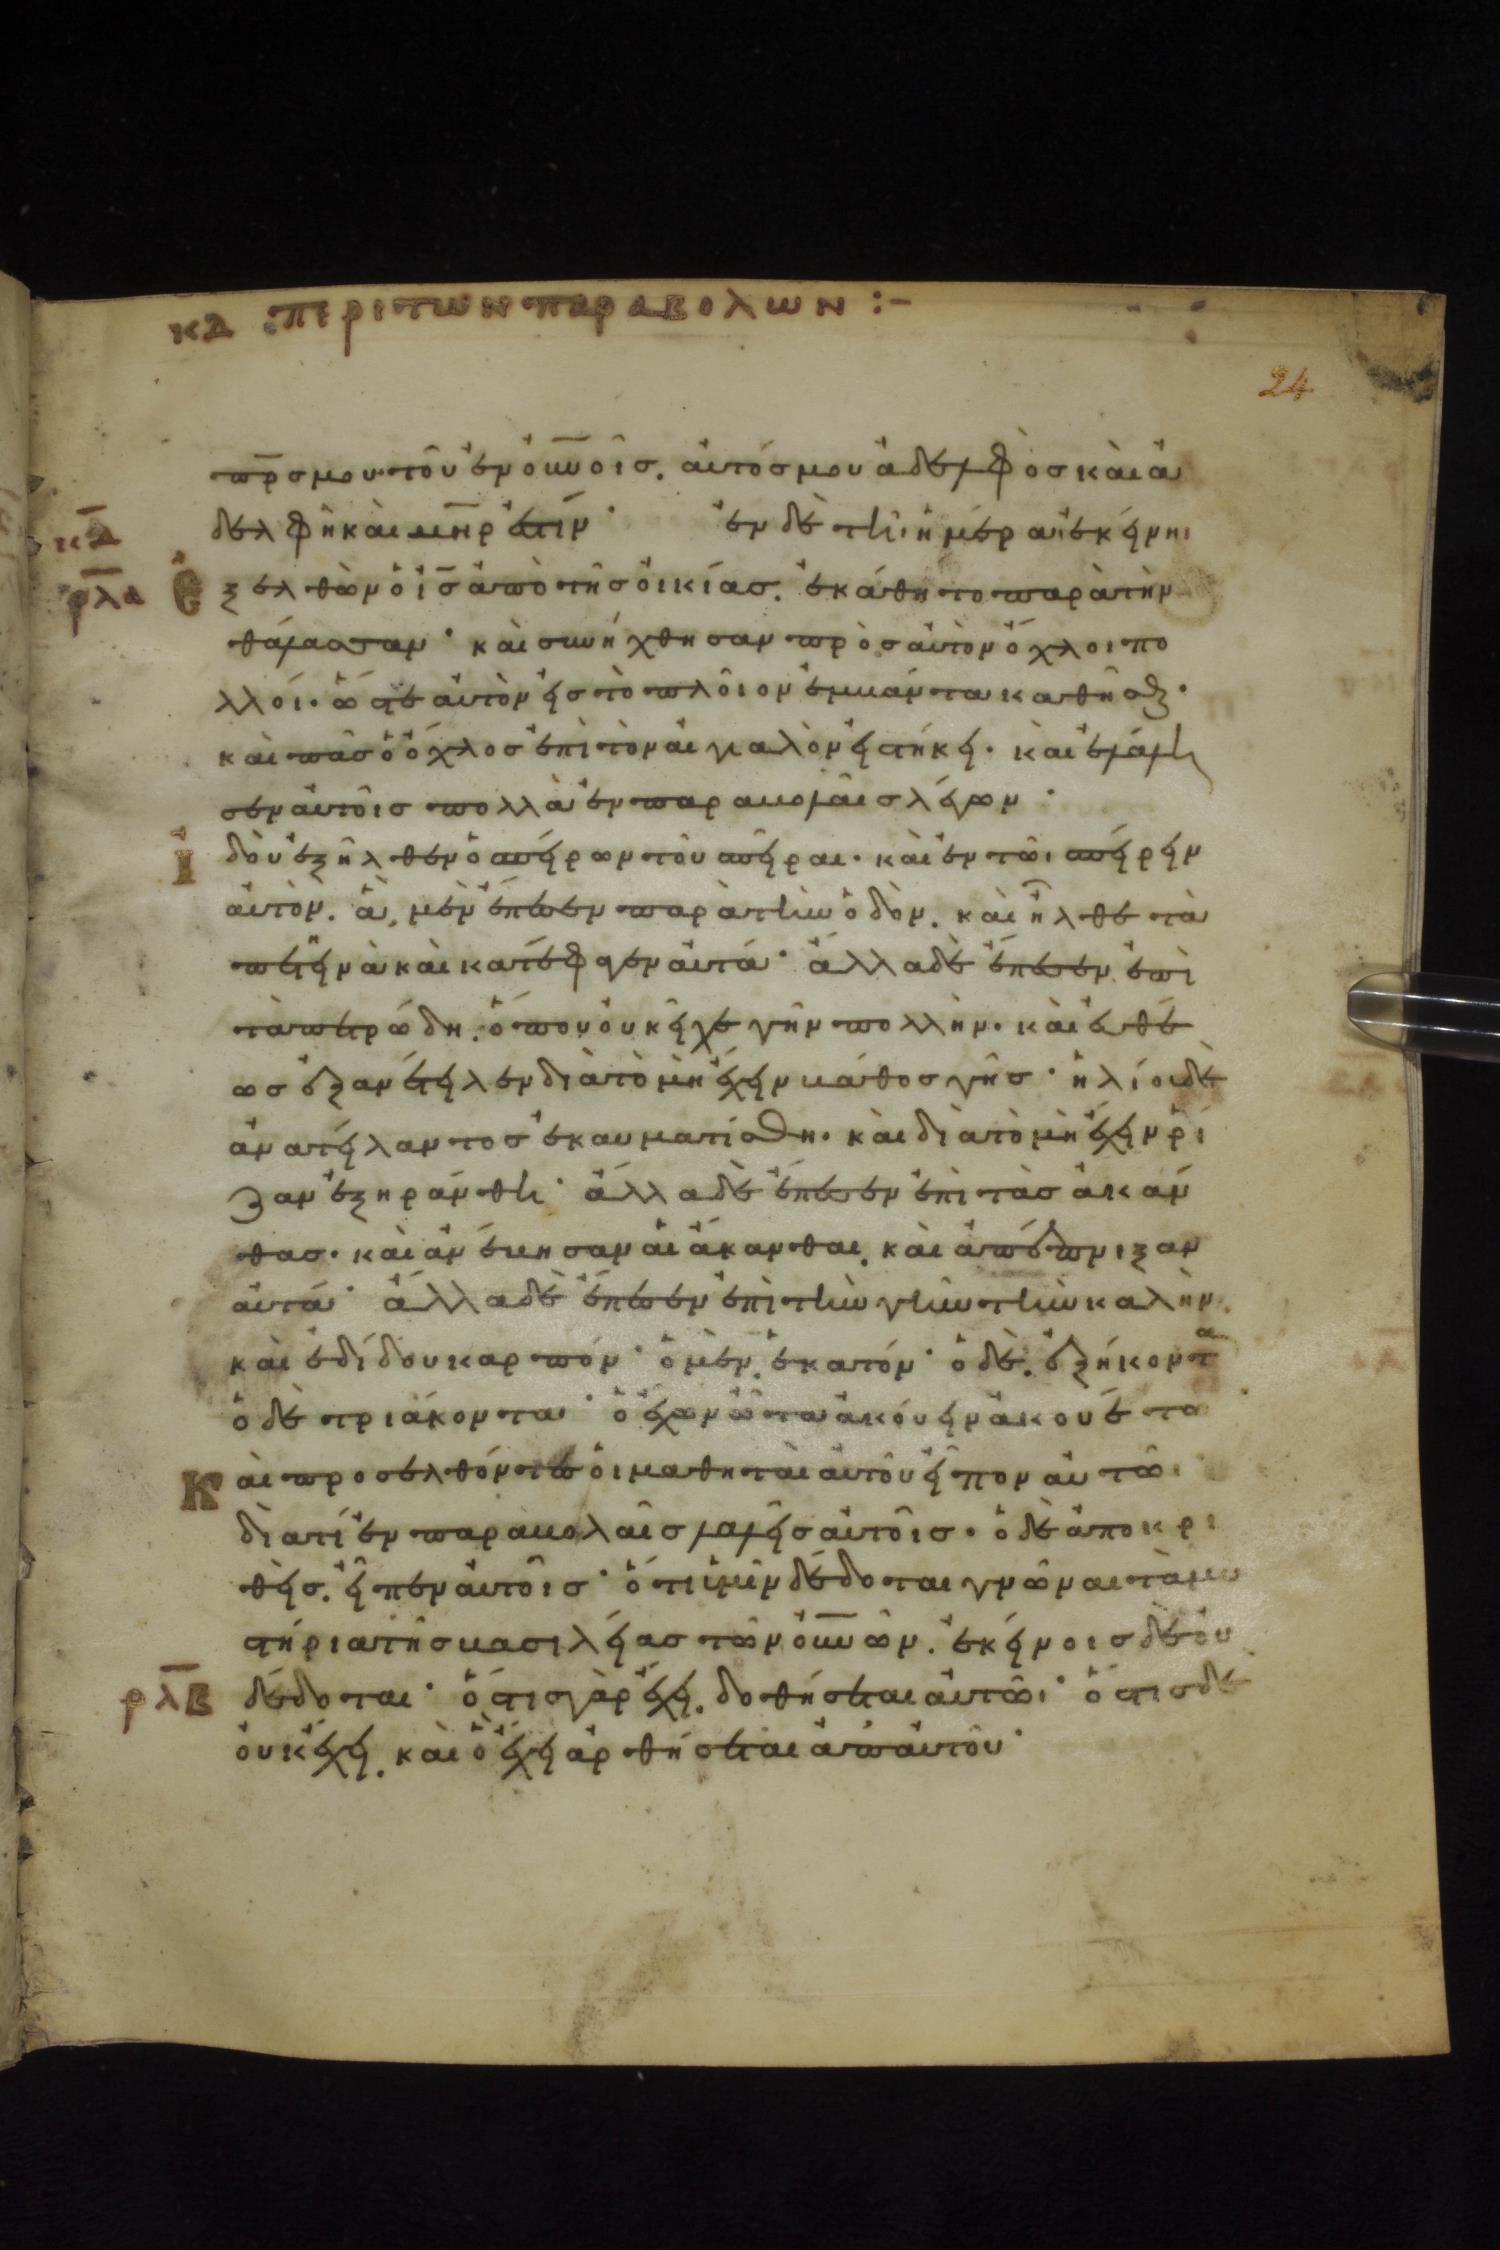 κδ :περι των παραβολων :-
24
πρ̅ς μου τοῦ ἐν ὀυ̅νοῖς. ἀυτός μου ἀδελφὸς κὰι ἀ
κδ̅ δελφὴ κὰι μη̅ρ ἐστίν· ἐν δὲ τῆι ἡμέραι ἐκείνηι
ρλ̅α ἐξελθὼν ὁ ι̅ς ἀπὸ τῆς ὀικίας. ἐκάθητο παρὰ τὴν
θάλασσαν· κὰι συνήχθησαν πρὸς ἀυτὸν ὄχλοι πο
λλόι. ὥστε ἀυτὸν εἰς τὸ πλοῖον ἐμβάντα καθῆσθαι·
κὰι πᾶς ὁ ὄχλος ἐπὶ τὸν αἰγιαλὸν εἱστήκει. κὰι ἐλάλη
σεν ἀυτοῖς πολλὰ ἐν παραβολᾶις λέγων·
ἰδὸυ ἐξῆλθεν ὁ σπείρων τοῦ σπεῖραι. κὰι ἐν τῶι σπείρειν
ἀυτὸν. ἃ, μὲν ἔπεσεν παρὰ τὴν ὁδὸν. κὰι ἦλθε τὰ
πετεινὰ κὰι κατέφαγεν ἀυτά· ἄλλα δὲ ἔπεσεν ἐπὶ
τὰ πετρώδη. ὅπου ὀυκ εἶχε γῆν πολλὴν. κὰι ἐυθέ
ως ἐξανέτειλεν διὰ τὸ μὴ ἔχειν βάθος γῆς· ἡλίου δὲ
ἀνατείλαντος ἐκαυματίσθη. κὰι διὰ τὸ μὴ ἔχειν ῥί
ζαν ἐξηράνθη· ἄλλα δὲ ἔπεσεν ἐπὶ τὰς ἀκάν
θας. κὰι ἀνέβησαν ἁι ἄκανθαι. κὰι ἀπέπνιξαν
ἀυτά· ἄλλα δὲ ἔπεσεν ἐπὶ τὴν γῆν τὴν καλὴν.
κὰι ἐδίδου καρπόν· ὁ μὲν. ἑκατόν· ὁ δὲ. ἑξήκοντα
ὁ δὲ τριάκοντα· ὁ ἔχων ὦτα ἀκόυειν ἀκουέτω
Κὰι προσελθόντες ὁι μαθητὰι ἀυτοῦ εἶπον ἀυτῶι·
διατί ἐν παραβολᾶις λαλεῖς ἀυτοῖς. ὁ δὲ ἀποκρι
θεὶς. εἶπεν ἀυτοῖς· ὅτι ὑμῖν δέδοται γνῶναι τὰ μυ
στήρια τῆς βασιλείας τῶν ὀυ̅νῶν. ἐκείνοις δὲ ὀυ
ρλ̅β δέδοται· ὅστις γὰρ ἔχει. δοθήσεται ἀυτῶι· ὅστις δὲ
ὀυκ ἔχει. κὰι ὃ ἔχει ἀρθήσεται ἀπ ἀυτοῦ·